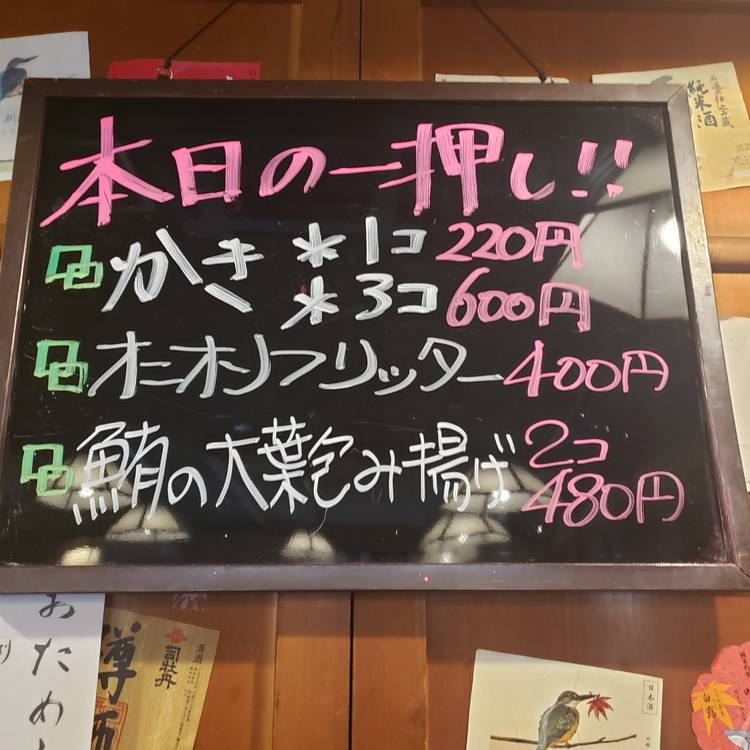 本日の一押し!!
かき *1コ 220円
*3コ 600円
オニオンフリッター 400円
鮪の大葉包み揚げ 2コ
480円
純米酒
おため
清酒
司牡丹
樽酒
日本酒